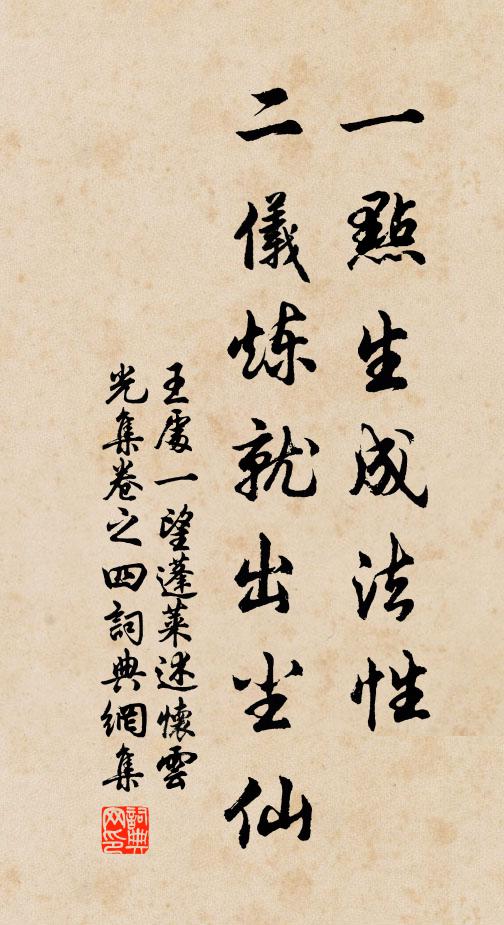 一點生成法性
二儀炼就出尘仙
王處一望蓬萊述懷雲
光集卷之四詞典網集
詞典网印